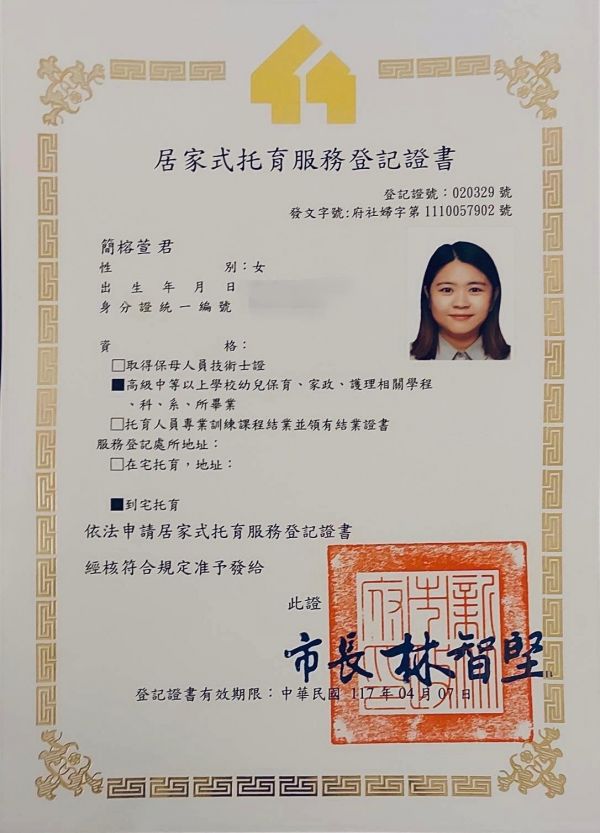 居家式托育服務登記證書
登記證號：020329 號
發文字號:府社婦字第 1110057902 號
簡榕萱 君
性別：女
出生年月日
身分證統一編號
資格：
□取得保母人員技術士證
■高級中等以上學校幼兒保育、家政、護理相關學程
、科、系、所畢業
□托育人員專業訓練課程結業並領有結業證書
服務登記處所地址：
□在宅托育，地址：
■到宅托育
依法申請居家式托育服務登記證書
經核符合規定准予發給
此證
市長 林智堅
登記證書有效期限：中華民國 117 年 04 月 07 日